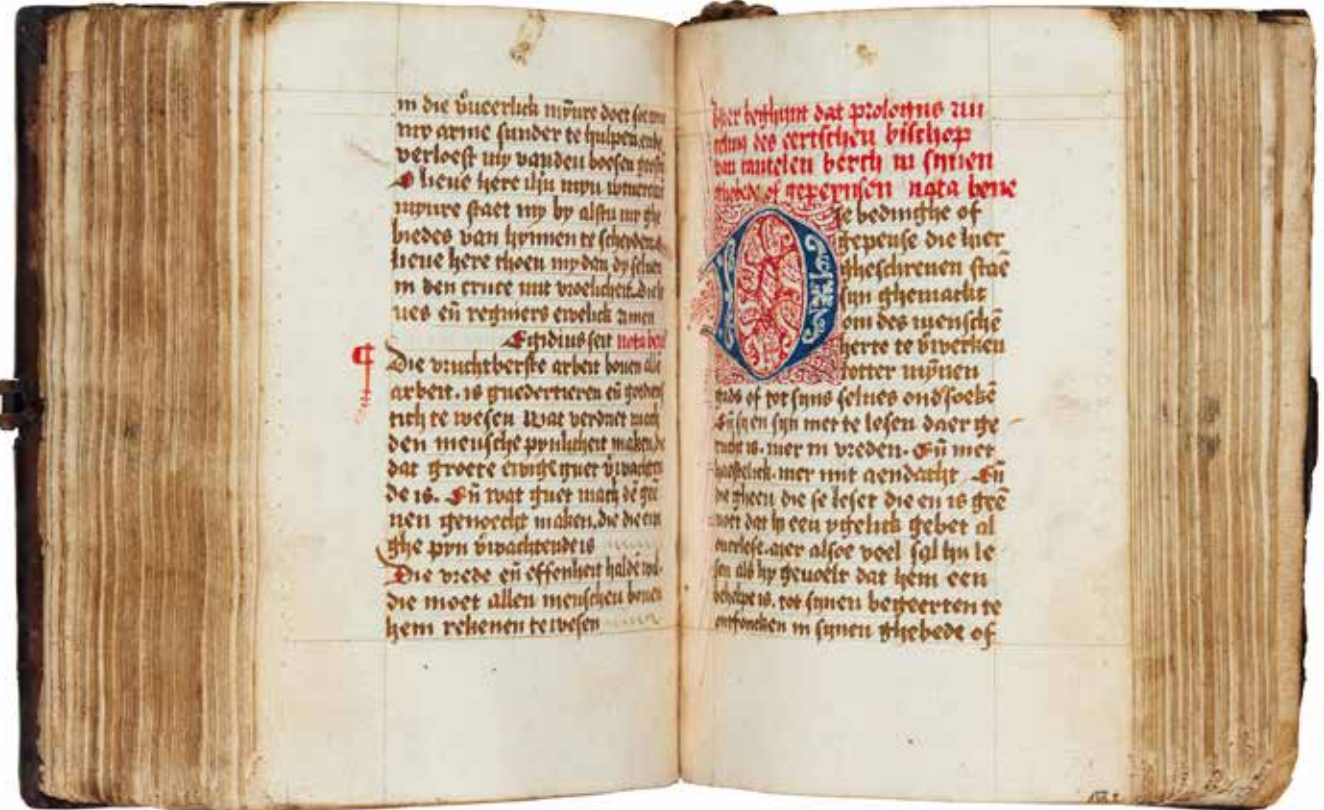 in die vueerlick mynre doet
my arme sunder te hulpen. ende
verloest my vanden boesen
O lieue here ihu myn
mynre staet my by alstu my ghe
biedes van hynnen te scheyden.
lieue here thoen my dan dy seluen
in den cruce mit vroelicheit. die
ues eñ regniers ewelick amen
Egidius seit nota bene
Die vruchtberste arbeit bouen alle
arbeit. is guedertieren eñ goeder
tich te wesen Wat verdriet mach
den mensche pynlicheit maken. de
dat groete ewige guet v̄wachten
de is. Eñ wat guet mach dē gee
nen genoecht maken. die die ewi
ghe pyn v̄wachtende is
Die vrede eñ effenheit halde wil.
die moet allen menschen bouen
hem rekenen te wesen
Hier beghynt dat prologus an
selmi des eertschen bischop
van cantelen berch in synen
ghebede of gepeynsen nota bene
Dese bedinghe of
gepense die hier
ghescreuen staē
syn ghemackt
om des menschē
herte te v̄wecken
totter mynnen
gods of tot syns selues ondsoekē
Eñ syen syn niet te lesen daer ge
rucht is. mer in vreden. Eñ niet
haestelick. mer mit aendacht Eñ
die gheen die se leset die en is geē
noet dat hy een ygelick gebet al
ouerlese. mer alsoe voel sal hy le
sen als hy geuoelt dat hem een
behelpe is. tot synen begeerten te
ontfoncken in synen ghebede of